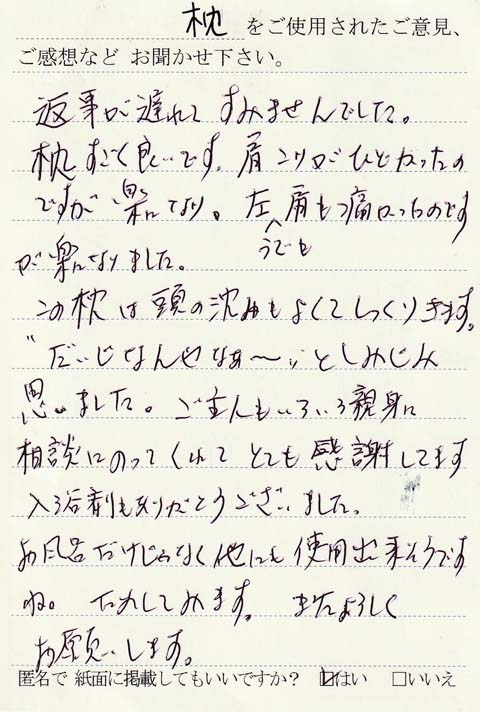 枕 をご使用されたご意見、
ご感想など お聞かせ下さい。
返事が遅れて すみませんでした。
枕すごく良いです。肩こりがひどかったの
ですが 楽になり。左肩も痛かったのです
うでも
が楽になりました。
この枕は頭の沈みもよくてしっくりきます。
"だいじなんやなぁ〜"としみじみ
思いました。ご主人もいろいろ親身に
相談にのってくれて とても感謝してます
入浴剤もありがとうございました。
お風呂だけじゃなく他にも使用出来そうです
ね。 ためしてみます。 またよろしく
お願いします。
匿名で 紙面に掲載してもいいですか？ ☑はい □いいえ